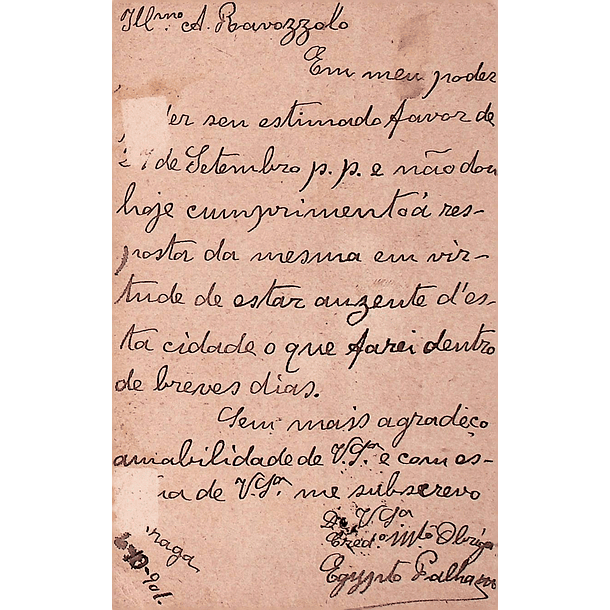 Illmo. A. Ravozzolo
Em meu poder
seu estimado favor de
de Setembro p. p. e não dou
hoje cumprimento á res-
posta da mesma em vir-
tude de estar auzente d'es-
ta cidade o que farei dentro
de breves dias.
Sem mais agradeço
amabilidade de V. Sa. e com es-
de V. Sa. me subscrevo
De V. Sa
Credo. Mto Obrigo
Egypto
raga
-901.